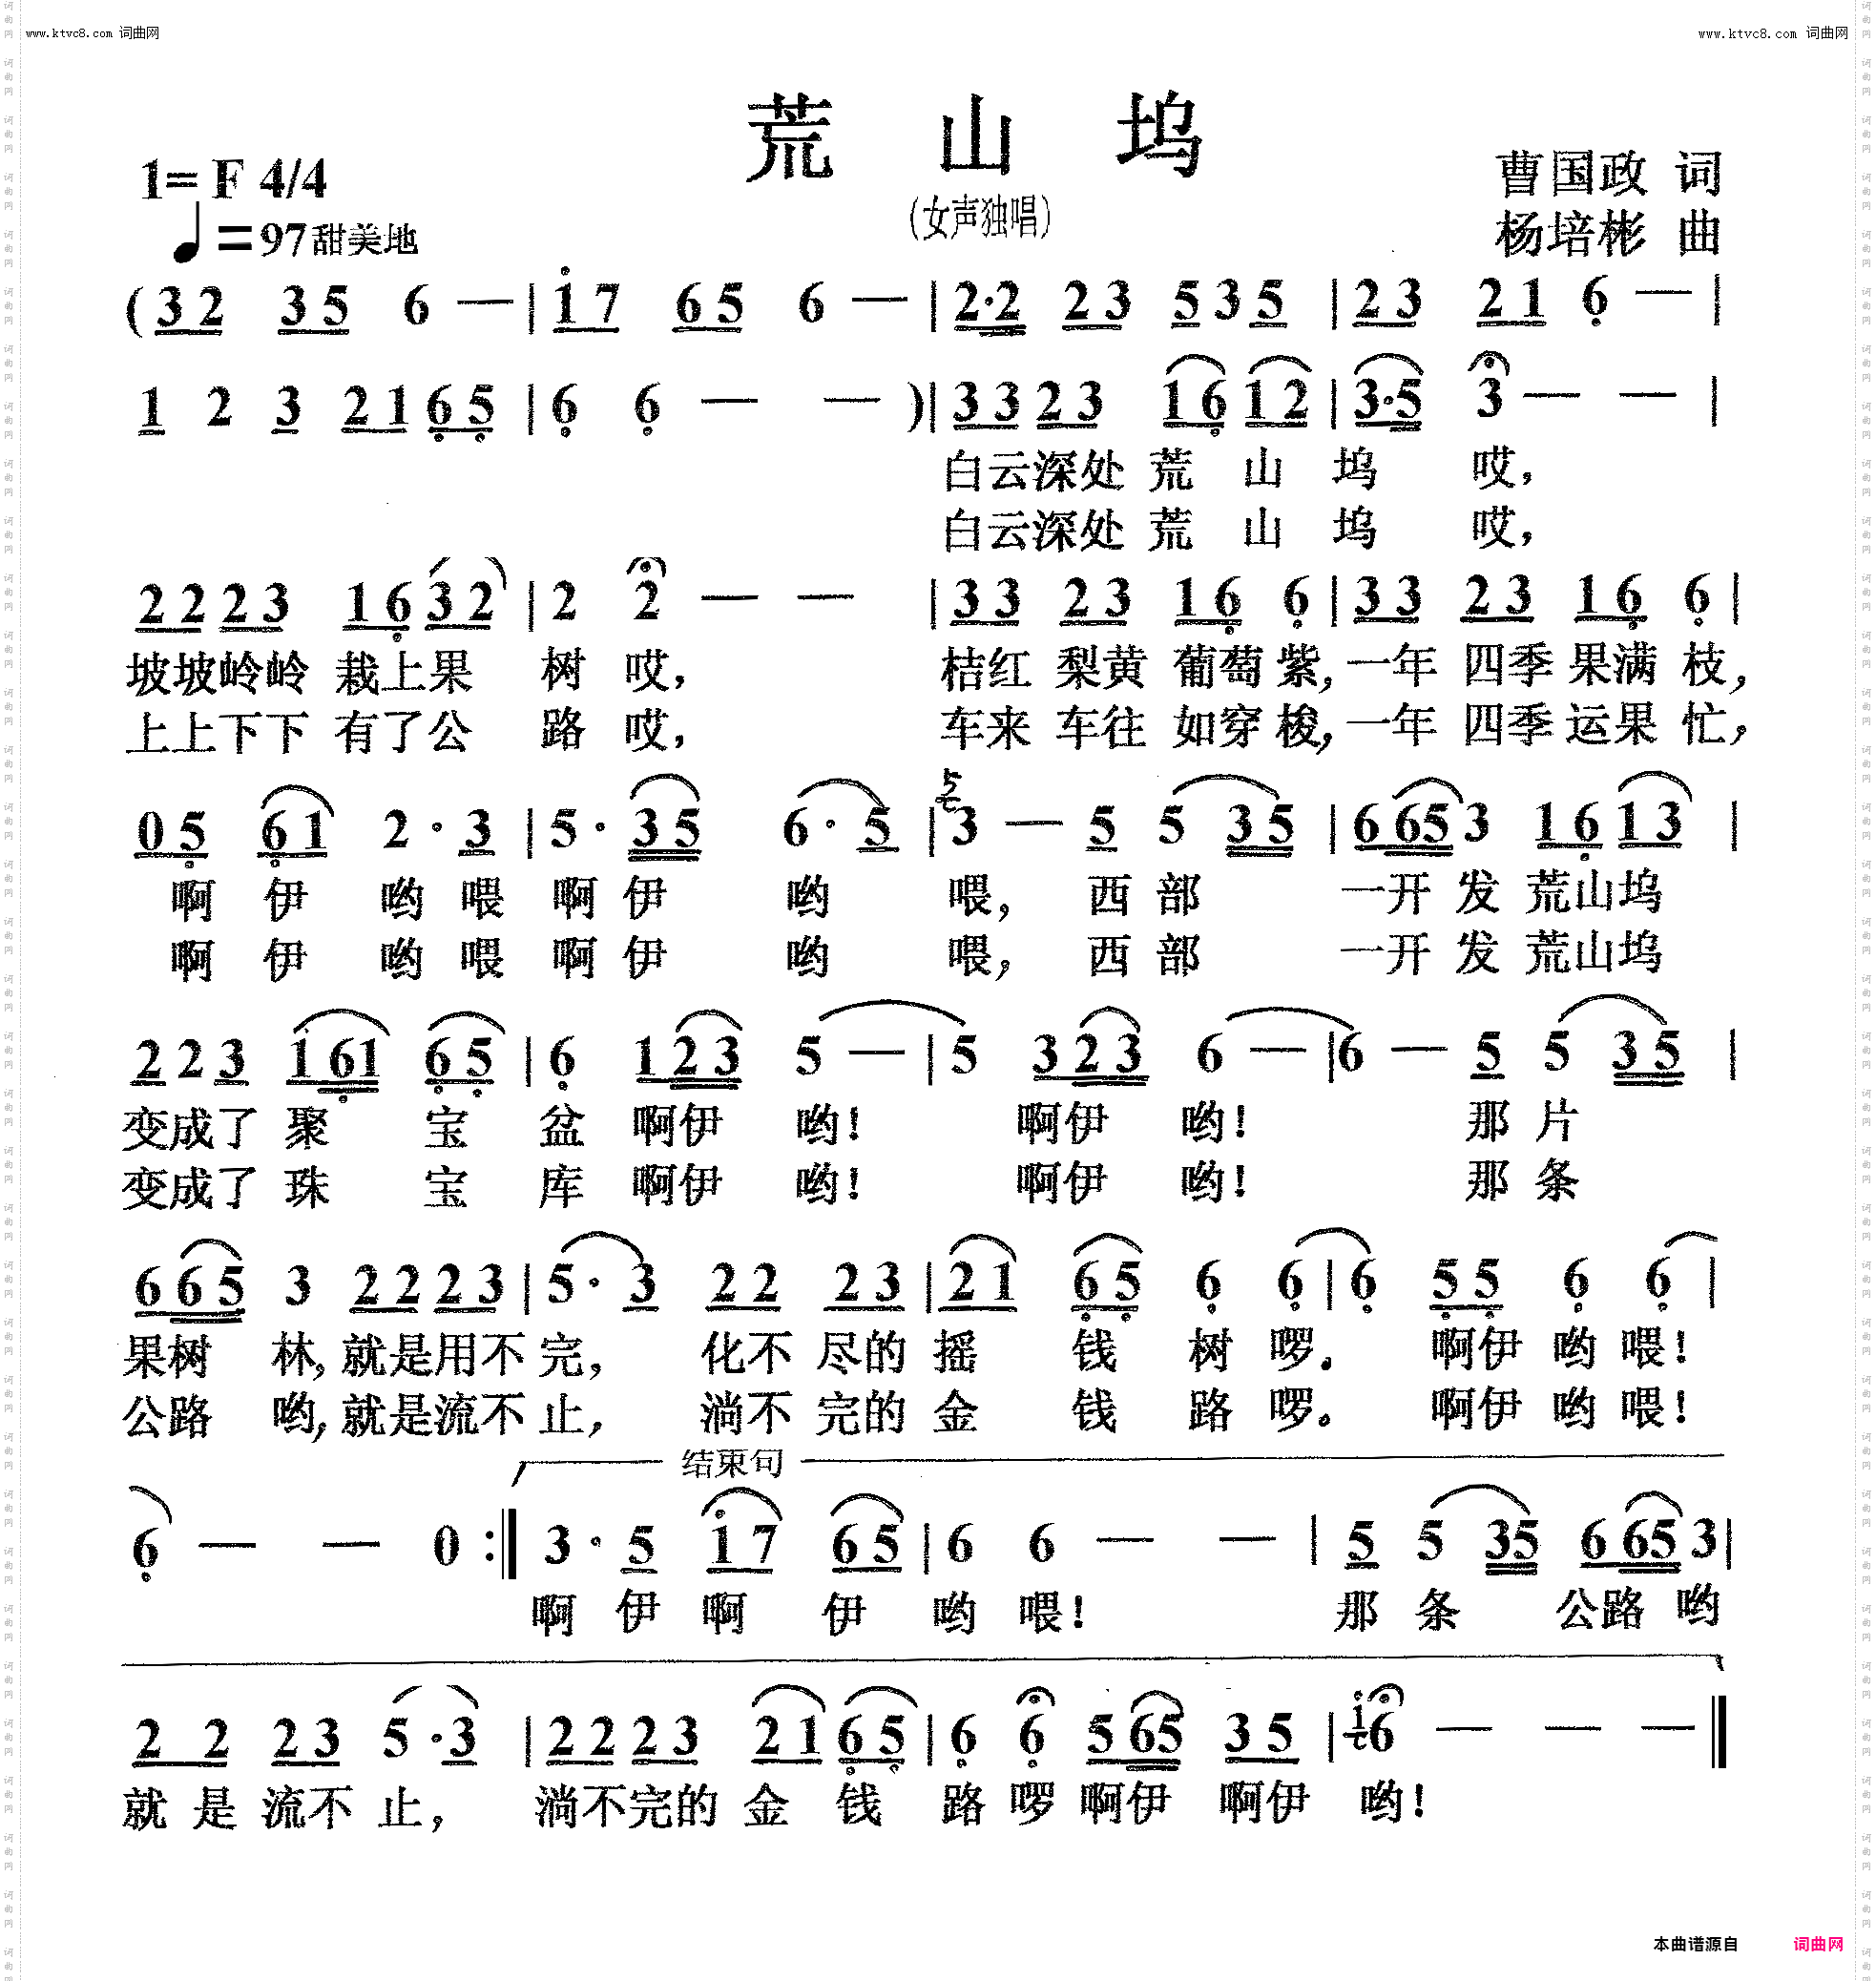 www.ktvc8.com 词曲网
www.ktvc8.com 词曲网
荒 山 坞
(女声独唱)
1= F 4/4
♩=97甜美地
曹国政 词
杨培彬 曲
(3 2 3 5 6 — | i 7 6 5 6 — | 2·2 2 3 5 3 5 | 2 3 2 1 6 — |
1 2 3 2 1 6 5 | 6 6 — — )| 3 3 2 3 1 6 1 2 | 3·5 3 — — |
白云深处 荒 山 坞 哎,
白云深处 荒 山 坞 哎,
2 2 2 3 1 6 3 2 | 2 2 — — | 3 3 2 3 1 6 6 | 3 3 2 3 1 6 6 |
坡坡岭岭 栽上果 树 哎, 桔红 梨黄 葡萄 紫, 一年 四季 果满 枝,
上上下下 有了公 路 哎, 车来 车往 如穿 梭, 一年 四季 运果 忙,
0 5 6 1 2 · 3 | 5 · 3 5 6 · 5 | 5 3 — 5 5 3 5 | 6 6 5 3 1 6 1 3 |
啊 伊 哟 喂 啊 伊 哟 喂, 西 部 一开 发 荒山坞
啊 伊 哟 喂 啊 伊 哟 喂, 西 部 一开 发 荒山坞
2 2 3 1 6 1 6 5 | 6 1 2 3 5 — | 5 3 2 3 6 — | 6 — 5 5 3 5 |
变成了 聚 宝 盆 啊伊 哟! 啊伊 哟! 那 片
变成了 珠 宝 库 啊伊 哟! 啊伊 哟! 那 条
6 6 5 3 2 2 2 3 | 5 · 3 2 2 2 3 | 2 1 6 5 6 6 | 6 5 5 6 6 |
果树 林, 就是用不 完, 化不 尽的 摇 钱 树 啰. 啊伊 哟 喂!
公路 哟, 就是流不 止, 淌不 完的 金 钱 路 啰。 啊伊 哟 喂!
结束句
6 — — 0 :‖ 3 · 5 i 7 6 5 | 6 6 — — | 5 5 3 5 6 6 5 3 |
啊 伊 啊 伊 哟 喂! 那 条 公路 哟
2 2 2 3 5 · 3 | 2 2 2 3 2 1 6 5 | 6 6 5 6 5 3 5 | i 6 — — — ‖
就 是 流不 止, 淌不完的 金 钱 路 啰 啊伊 啊伊 哟!
本曲谱源自 词曲网